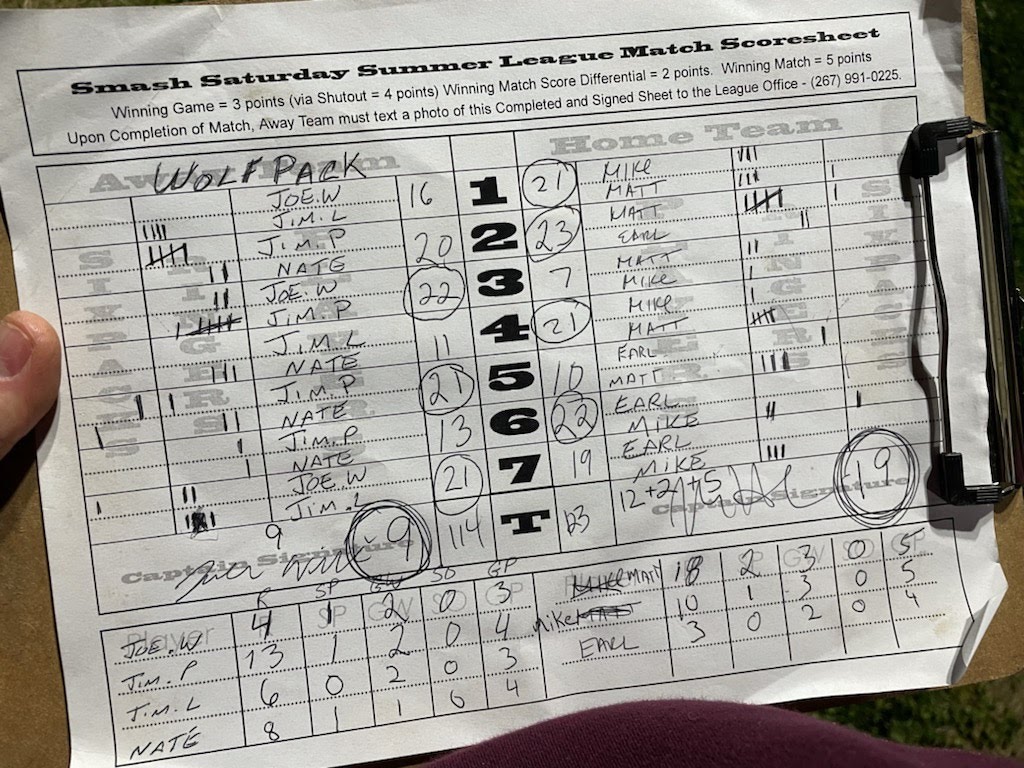 Smash Saturday Summer League Match Scoresheet
Winning Game = 3 points (via Shutout = 4 points) Winning Match Score Differential = 2 points. Winning Match = 5 points
Upon Completion of Match, Away Team must text a photo of this Completed and Signed Sheet to the League Office - (267) 991-0225.
Away Team Home Team
WOLF PACK
JOE.W 16 1 21 MIKE
JIM.L MATT
JIM.P 20 2 23 MATT
NATE EARL
JOE.W 22 3 7 MATT
JIM.P MIKE
JIM.L 11 4 21 MIKE
NATE MATT
JIM.P 21 5 10 EARL
NATE MATT
JIM.P 13 6 22 EARL
NATE MIKE
JOE.W 21 7 19 EARL
JIM.L MIKE
9 9 114 T 123 12+2+5 19
Captain Signature Captain Signature
R SP GW SO GP
Player SP GW SO GP
JOE.W 4 1 2 0 3 MATT 18 2 3 0 5
JIM.P 13 1 2 0 4 MIKE 10 1 3 0 5
JIM.L 6 0 2 0 3 EARL 3 0 2 0 4
NATE 8 1 1 0 4